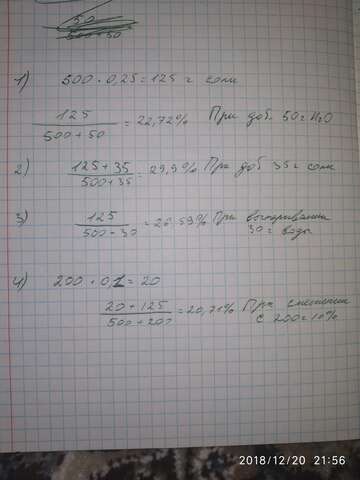 50
500+50
1) 500 · 0,25 = 125 г соли
125
500 + 50
= 22,72% При доб. 50 г H₂O
2) 125 + 35
500 + 35
= 29,9% При доб 35 г соли
3) 125
500 - 30
= 26,59% При выпаривании
30 г воды
4) 200 · 0,1 = 20
20 + 125
500 + 200
= 20,71% При смешении
с 200 г 10%
2018/12/20 21:56